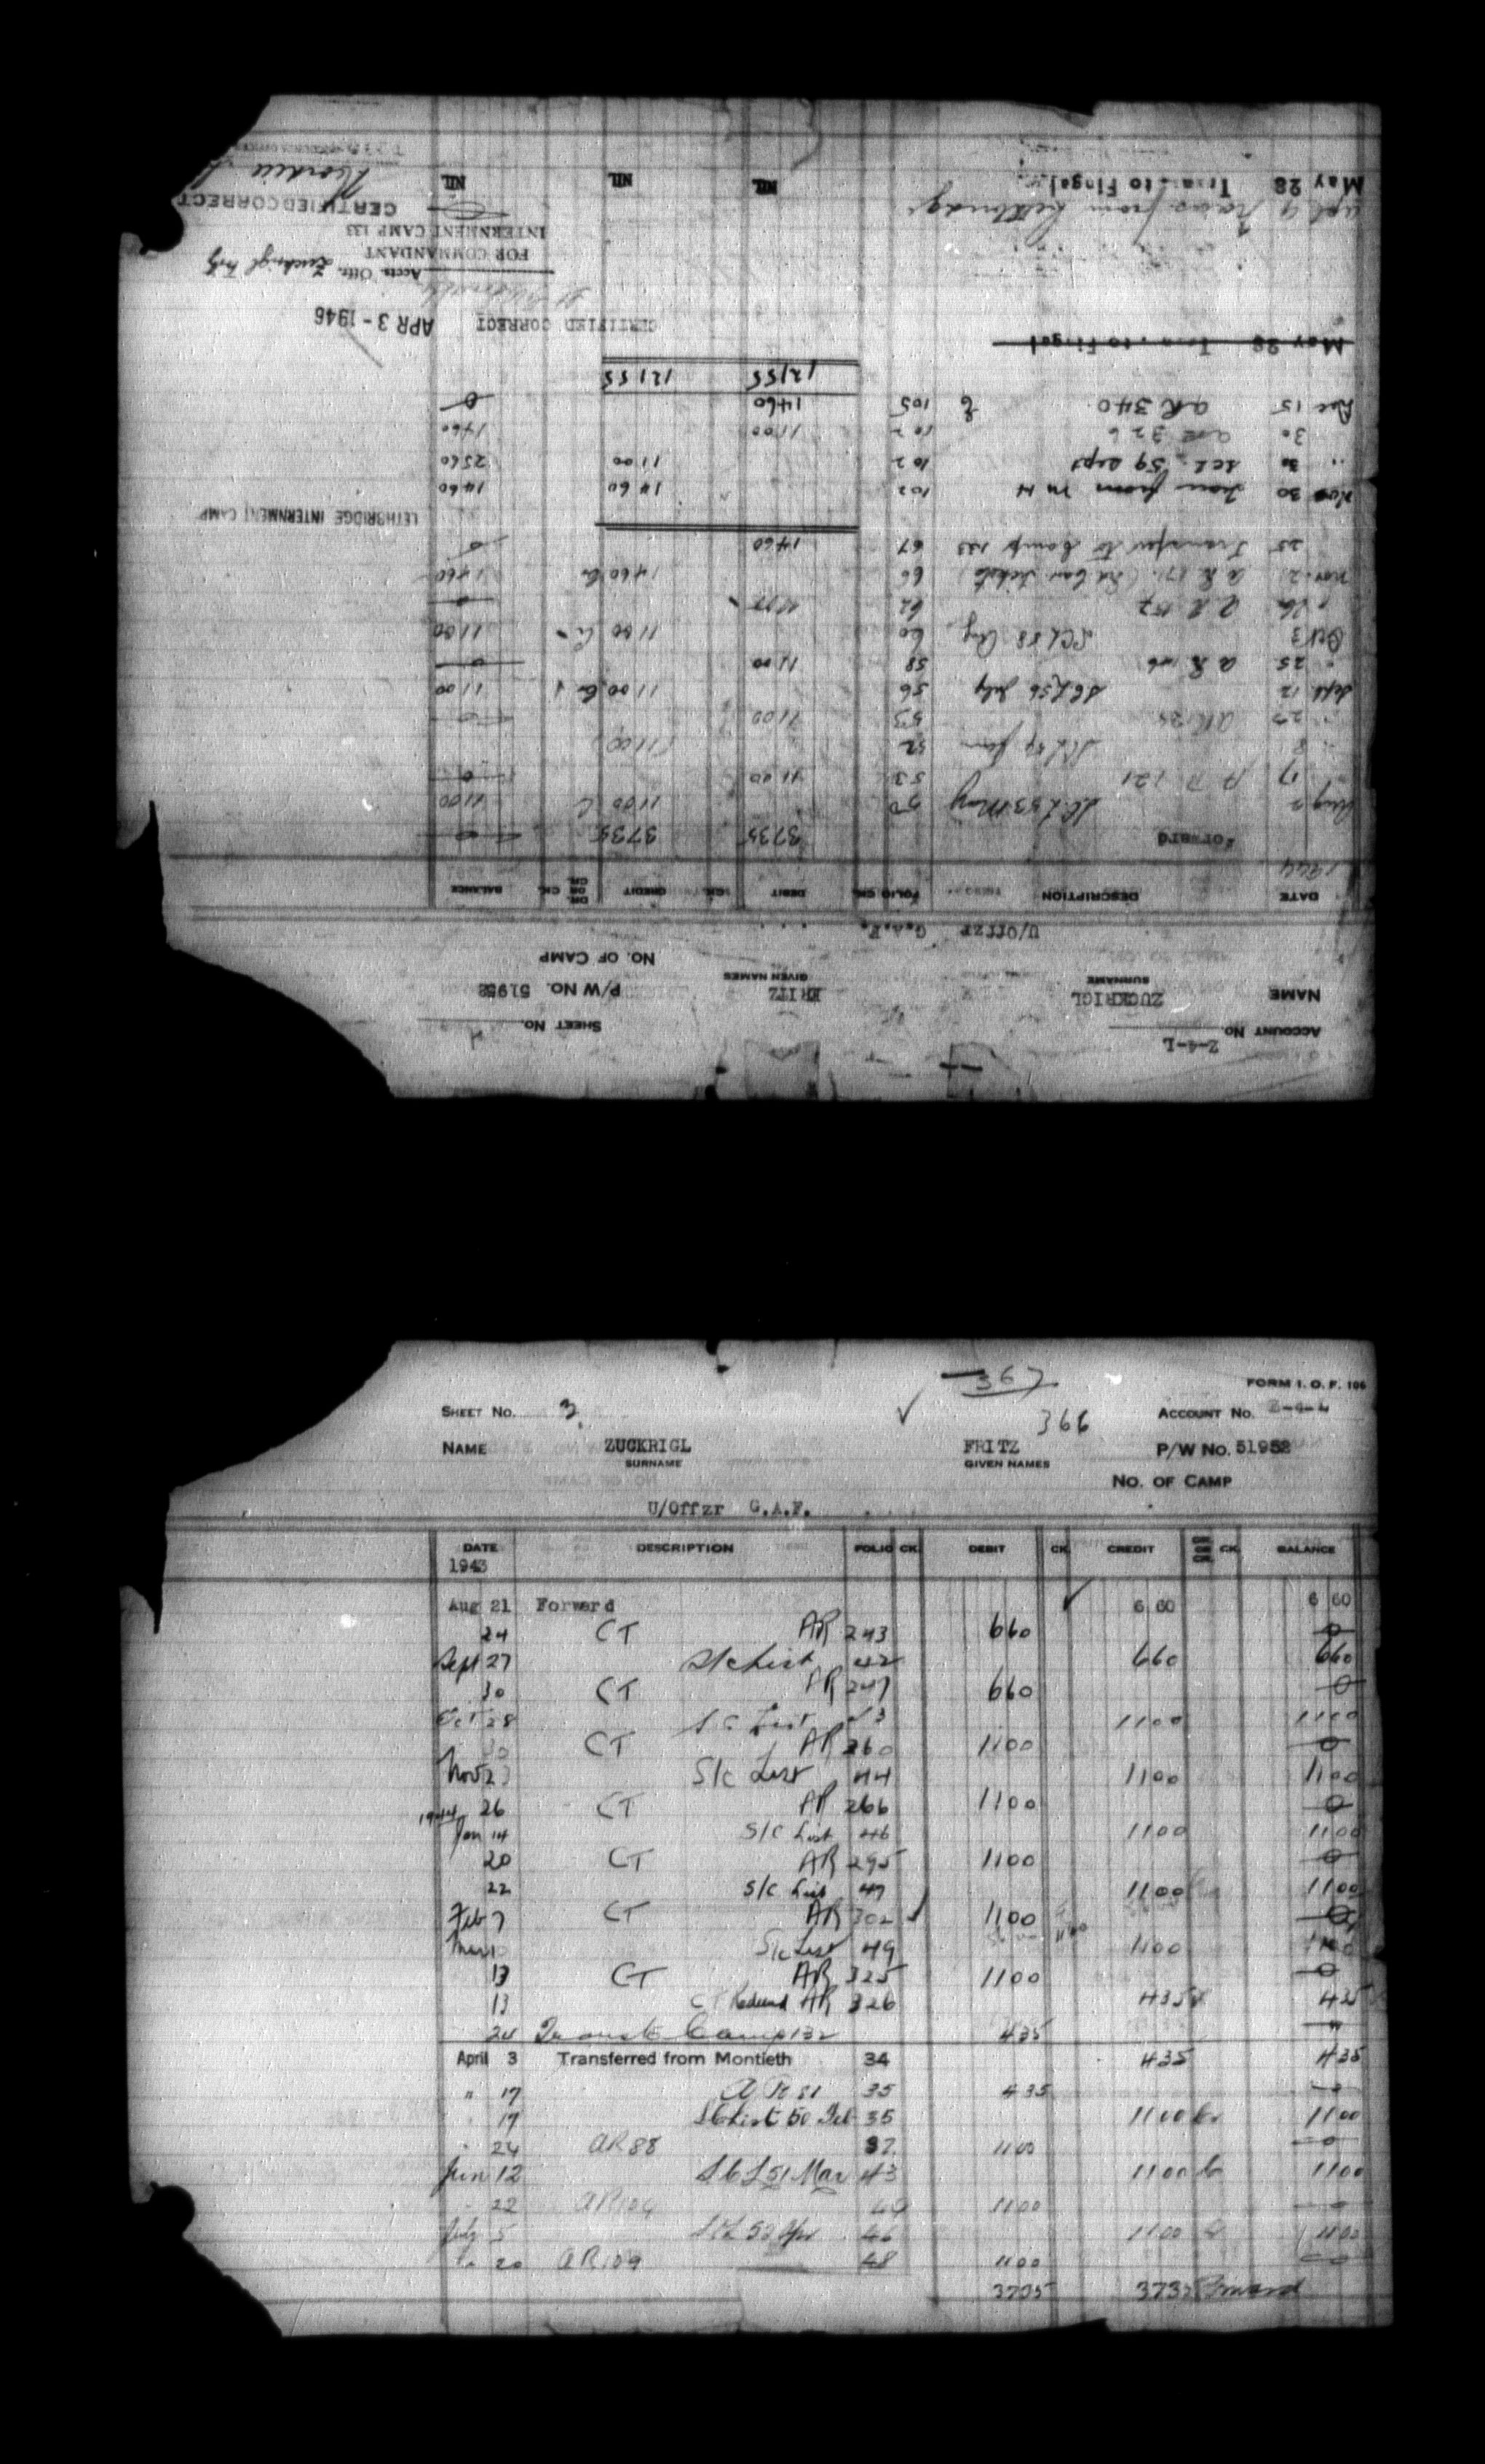 ACCOUNT No. Z-4-L
SHEET No.
NAME ZUCKRIGL FRITZ P/W No. 51952
SURNAME GIVEN NAMES
NO. OF CAMP
U/Offzr G.A.F.
DATE DESCRIPTION FOLIO CK. DEBIT CK. CREDIT DR. OR CR. CK. BALANCE
1944
Forward 3735 3735 0
Aug 2 SCL 53 May 50 1100 C 1100
17 AR 121 53 1100 0
52 1100
53 1100
Sept 12 SCL 56 July 56 1100 Cr 1100
" 25 AR 58 1100 0
Oct 3 SCL 58 Aug 60 1100 C 1100
" 26 AR 157 62 1100 0
Nov 21 AR 171 66 1460 Cr 1460
25 Transfer to Camp 133 67 1460 0
LETHBRIDGE INTERNMENT CAMP
Nov 30 Tran from M H 102 1460 1460
" 30 SCL 59 Sept 102 1100 2560
30 AR 326 102 1100 1460
Dec 15 AR 340 105 1460 0
12155 12155
May 28 Tran. to Fingal
CERTIFIED CORRECT APR 3 - 1946
Accts. Offr. Zuckrigl Fritz
FOR COMMANDANT
INTERNMENT CAMP 133
Trans from Lethbridge
CERTIFIED CORRECT
May 28 Tran. to Fingal. NIL NIL NIL
367
FORM I. O. F. 106
SHEET No. 3. 366 ACCOUNT No. Z-4-L
NAME ZUCKRIGL FRITZ P/W No. 51952
SURNAME GIVEN NAMES
NO. OF CAMP
U/Offzr G.A.F.
DATE DESCRIPTION FOLIO CK. DEBIT CK. CREDIT DR. OR CR. CK. BALANCE
1943
Aug 21 Forward 6 60 6 60
24 CT AR 243 660 0
Sept 27 S/c List 42 660 660
30 CT AR 247 660 0
Oct 28 S C List 43 1100 1100
30 CT AR 260 1100 0
Nov 23 S/c List 44 1100 1100
26 CT AR 266 1100 0
1944
Jan 14 S/C List 46 1100 1100
20 CT AR 295 1100 0
22 S/C List 47 1100 1100
Feb 7 CT AR 302 1100 0
Mar 10 S/c List 49 1100 1100
13 CT AR 325 1100 0
13 CT Refund AR 326 435 435
24 Trans to Camp 132 435 "
April 3 Transferred from Montieth 34 435 435
" 17 AR 81 35 435 0
17 SC List 50 Feb 35 1100 Cr 1100
" 24 AR 88 37 1100 0
Jun 12 S C L 51 Mar 43 1100 Cr 1100
22 AR 104 1100
July 5 SCL 52 Apr 46 1100 1100
" 20 AR 109 48 1100 0
3735 3735 Forward